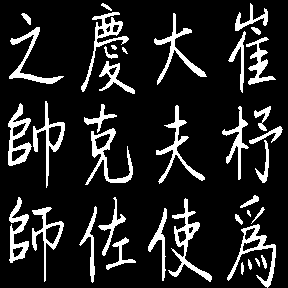 崔杼爲
大夫使
慶克佐
之帥師